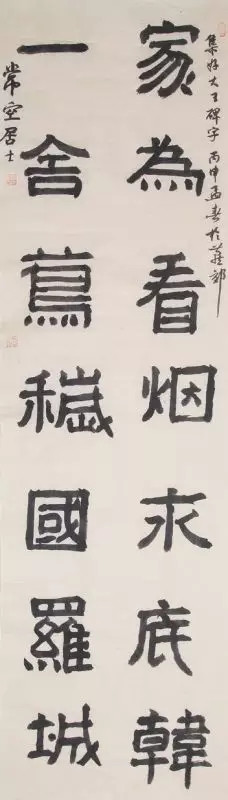 集好大王碑字丙申孟春於
家為看烟求底韓
一舍蔦穢國羅城
常空居士